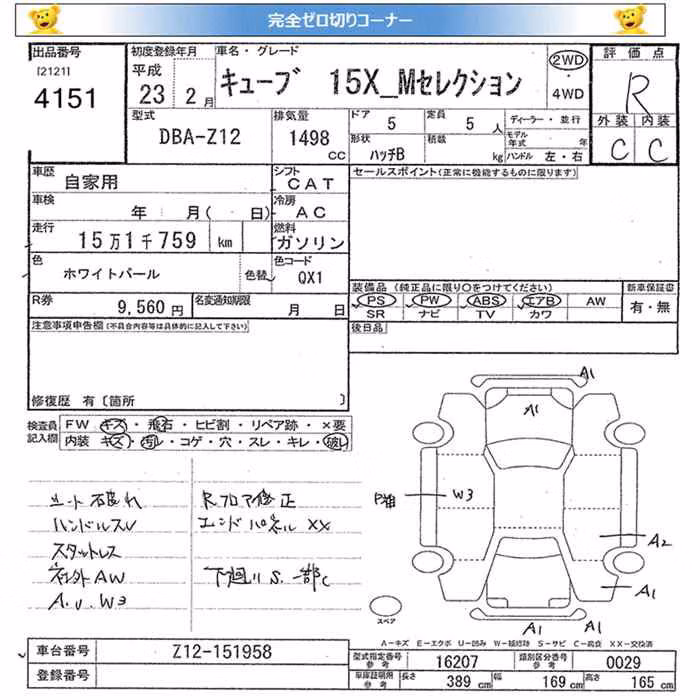 完全ゼロ切りコーナー
出品番号 [2121] 4151
初度登録年月 平成 23年 2月
車名・グレード キューブ 15X_Mセレクション
2WD・4WD
評価点 R
外装 内装
C C
型式 DBA-Z12
排気量 1498 CC
ドア 5 定員 5 人
形状 ハッチB 積載 kg
ディーラー・並行
モデル年式 年
ハンドル 左・右
車歴 自家用
シフト CAT
セールスポイント(正常に機能するものに限ります)
車検 年 月( 日)
冷房 AC
走行 15万1千759 km
燃料 ガソリン
色 ホワイトパール 色替
色コード QX1
R券 9,560 円
名変通知期限 月 日
装備品 (純正品に限り○をつけてください)
PS PW ABS エアB AW
SR ナビ TV カワ
新車保証書
有・無
後日品
注意事項申告欄(不具合内容等は具体的に記入して下さい)
修復歴 有〔箇所 〕
検査員記入欄
FW キズ・飛石・ヒビ割・リペア跡・×要
内装 キズ・汚レ・コゲ・穴・スレ・キレ・破レ
シート破れ
ハンドルスレ
スタットレス
社外AW
A.U.W3
Rフロア修正
エンドパネルXX
下廻りS.一部C
A1
A1
W3
A2
A1
A1 A1
スペア
A-キズ E-エクボ U-凹み W-補修跡 S-サビ C-腐食 XX-交換済
車台番号 Z12-151958
登録番号
型式指定番号 参考 16207
類別区分番号 参考 0029
車庫証明用 参考 長さ 389 cm 幅 169 cm 高さ 165 cm